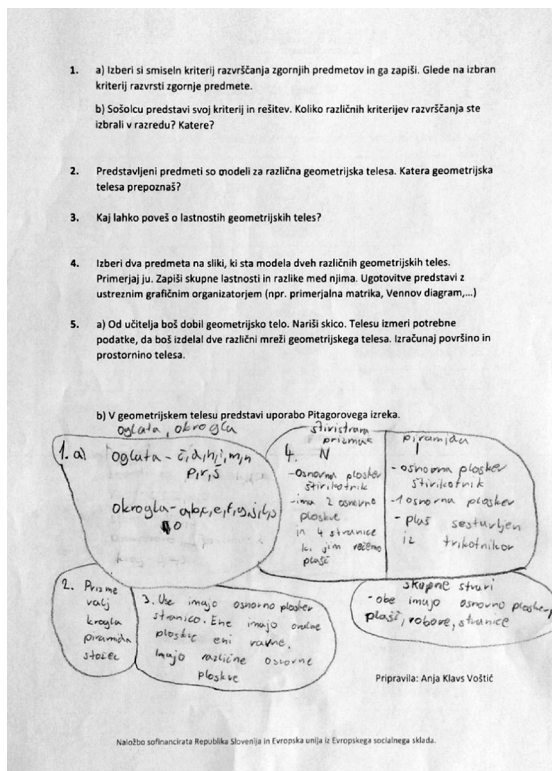 1. a) Izberi si smiseln kriterij razvrščanja zgornjih predmetov in ga zapiši. Glede na izbran
kriterij razvrsti zgornje predmete.
b) Sošolcu predstavi svoj kriterij in rešitev. Koliko različnih kriterijev razvrščanja ste
izbrali v razredu? Katere?
2. Predstavljeni predmeti so modeli za različna geometrijska telesa. Katera geometrijska
telesa prepoznaš?
3. Kaj lahko poveš o lastnostih geometrijskih teles?
4. Izberi dva predmeta na sliki, ki sta modela dveh različnih geometrijskih teles.
Primerjaj ju. Zapiši skupne lastnosti in razlike med njima. Ugotovitve predstavi z
ustreznim grafičnim organizatorjem (npr. primerjalna matrika, Vennov diagram,...)
5. a) Od učitelja boš dobil geometrijsko telo. Nariši skico. Telesu izmeri potrebne
podatke, da boš izdelal dve različni mreži geometrijskega telesa. Izračunaj površino in
prostornino telesa.
b) V geometrijskem telesu predstavi uporabo Pitagorovega izreka.
oglata, okrogla
1. a) oglata - č, d, h, i, m, n
p, r, š
okrogla -
4.
prizma
N
- osnovna ploskev
štirikotnik
- ima 2 osnovne
ploskve
in 4 stranice
ki jim rečemo
plašč
piramida
I
- osnovna ploskev
štirikotnik
- 1 osnovna ploskev
- plaš sestavljen
iz trikotnikov
skupne stvari
- obe imajo osnovno ploskev,
plašč, robove, stranice
2. Prizme
valj
krogla
piramida
stožec
3. Vse imajo osnovno ploskev
stranico. Ene imajo
ploskve eni ravne.
Imajo različne osnovne
ploskve
Pripravila: Anja Klavs Voštić
Naložbo sofinancirata Republika Slovenija in Evropska unija iz Evropskega socialnega sklada.